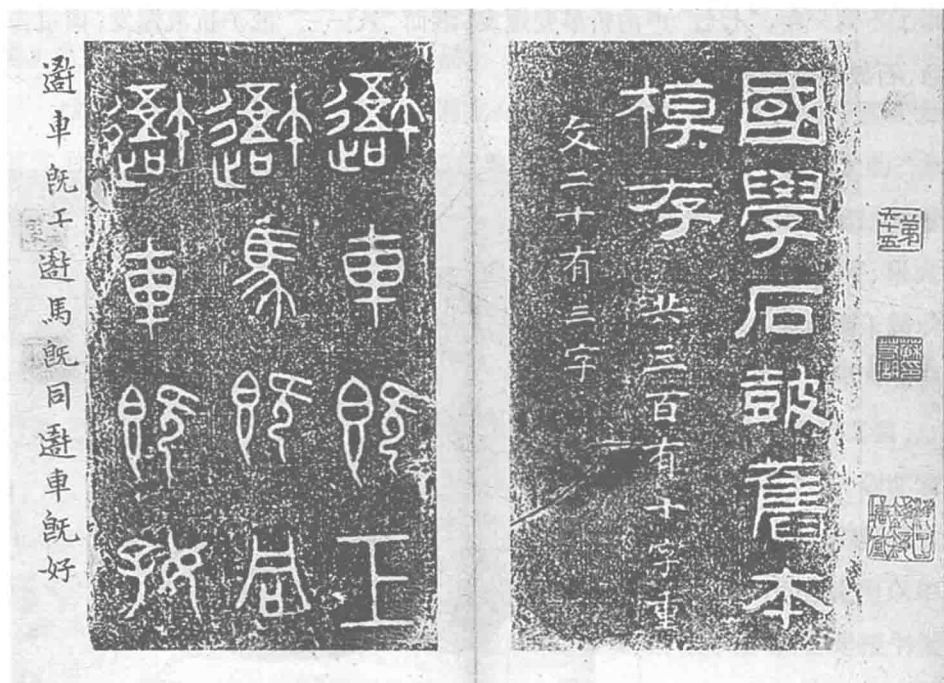 國學石鼓舊本
模存 共三百有十字重
文二十有三字
車既工
馬既同
車既好
車既工馬既同車既好